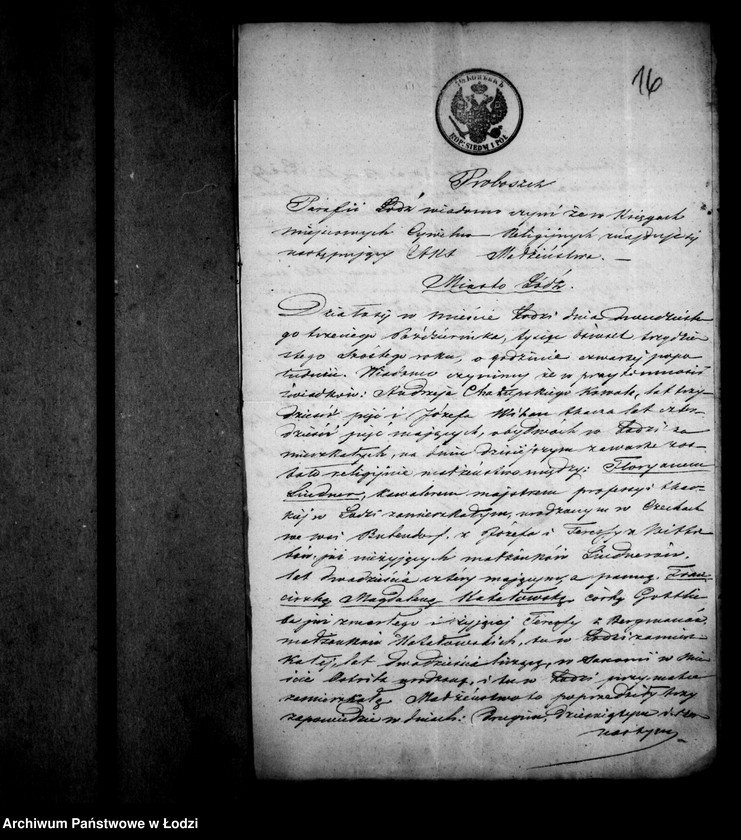 16
7½ КОПѢЕКЪ
KOP: SIEDM I PÓŁ
Proboszcz
Parafii Łódź wiadomo czyni że w Księgach
miejscowych Cywilno Religijnych znajduje się
następujący Akt Małżeństwa. —
Miasto Łódź.
Działo się w mieście Łodzi dnia dwudzieste-
go trzeciego Października, tysiąc ośmset trzydzie-
stego szóstego roku, o godzinie czwartej popo-
łudniu. Wiadomo czynimy że w przytomności
świadków: Andrzeja Chałupskiego Kowala, lat trzy-
dzieści pięć i Józefa tkacza lat czter-
dzieści pięć mających, obydwóch w Łodzi za-
mieszkałych, na dniu dzisiejszym zawarte zos-
tało religijnie małżeństwo między: Floryanem
Lindner, kawalerem majstrem professyi tkac-
kiej w Łodzi zamieszkałym, urodzonym w Czechach
we wsi z Józefa i Teresy z
już nieżyjących małżonków Lindnerów,
lat dwadzieścia cztery mającym, a panną Fran-
ciszką Magdaleną córką Gottlie-
ba już zmarłego i żyjącej Teresy z Bergmanów,
małżonków tu w Łodzi zamiesz-
kałej, lat dwadzieścia liczącą, w Saxonii w mie-
ście Ostritz urodzoną, i tu w Łodzi przy matce
zamieszkałą. Małżeństwo to poprzedziły trzy
zapowiedzie w dniach: Drugim, dziewiątym i szes-
nastym
Archiwum Państwowe w Łodzi